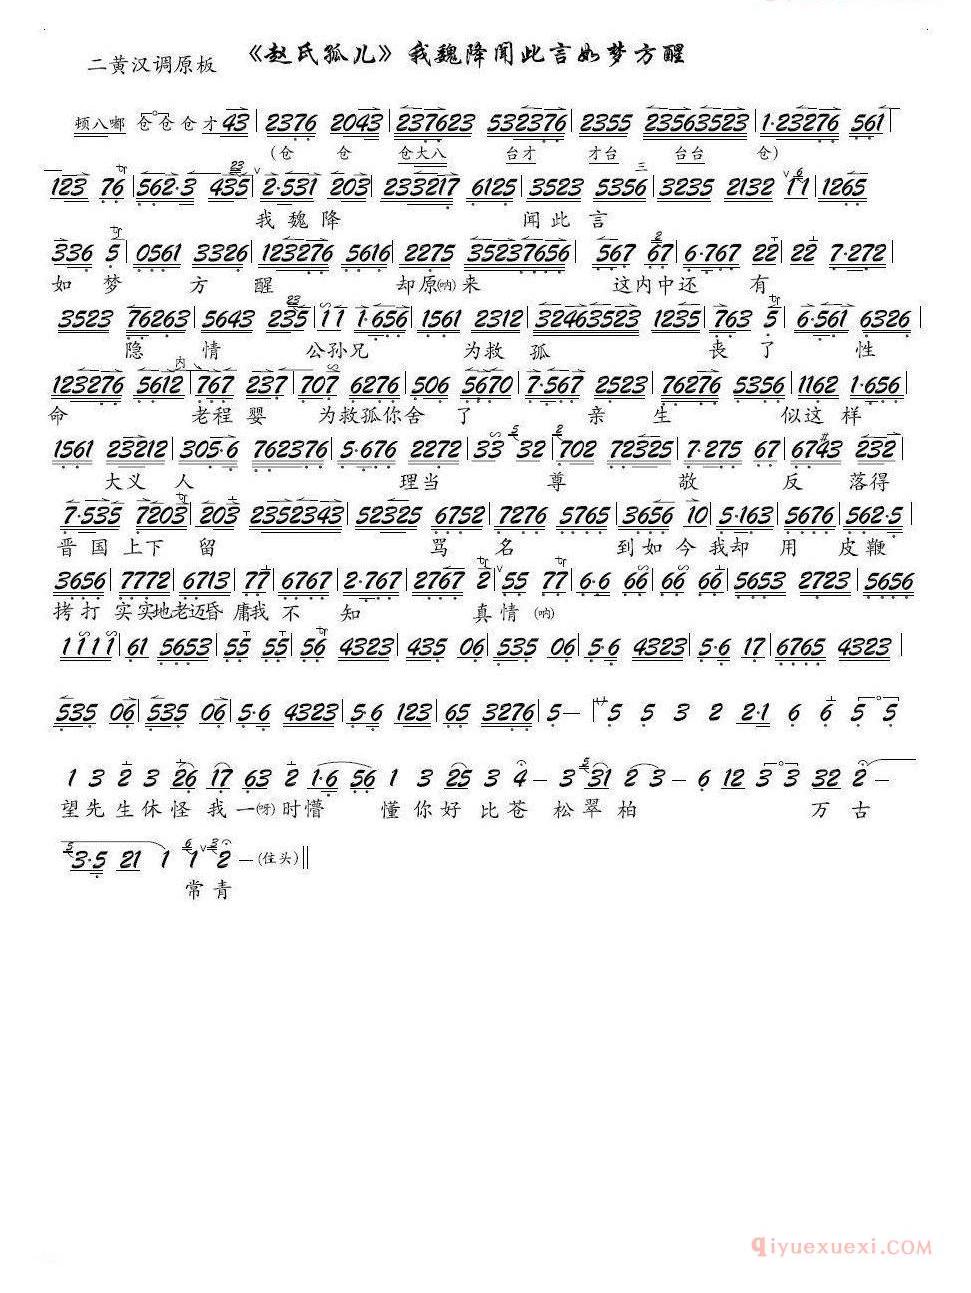 《赵氏孤儿》我魏降闻此言如梦方醒
二黄汉调原板
顿八嘟 仓 仓 仓 才 43 | 2376 2043 | 237623 532376 | 2355 23563523 | 1·23276 561 |
(仓 仓 仓大八 台才 才台 台台 仓)
123 76 | 562·3 435 | 2·531 203 | 233217 6125 | 3523 5356 | 3235 2132 11 | 1265 |
我魏降 闻此言
336 5 | 0561 3326 | 123276 5616 | 2275 35237656 | 567 67 | 6·767 22 | 22 7·272 |
如梦 方醒 却原(呐)来 这内中还有
3523 76263 | 5643 235 | 11 1·656 | 1561 2312 | 32463523 1235 | 763 5 | 6·561 6326 |
隐情 公孙兄 为救孤 丧了性
123276 5612 | 767 237 | 707 6276 | 506 5670 | 7·567 2523 | 76276 5356 | 1162 1·656 |
命 老程婴 为救孤你舍了 亲生 似这样
1561 23212 | 305·6 762376 | 5·676 2272 | 33 32 | 702 72325 | 7·275 67 | 6743 232 |
大义人 理当尊敬 反落得
7·535 7203 | 203 2352343 | 52325 6752 | 7276 5765 | 3656 10 | 5·163 | 5676 562·5 |
晋国上下留 骂名 到如今我却用皮鞭
3656 | 7772 | 6713 | 77 | 6767 | 2·767 | 2767 2 | 55 77 | 6·6 66 | 66 66 | 5653 2723 | 5656
拷打 实实地老迈昏庸我不知 真情(呐)
1111 | 61 5653 | 55 55 | 56 4323 | 435 06 | 535 06 | 56 4323 | 5·6 17 | 6765 4323 |
535 06 | 535 06 | 5·6 4323 | 5·6 123 | 65 3276 | 5— | 5 5 3 2 2·1 6 6 5 5
1 3 2 3 26 17 63 2 1·6 56 1 3 25 3 4 — 3 31 2 3 — 6 12 3 3 32 2 —
望先生休怪我一(呀)时懵懂你好比苍松翠柏 万古
3·5 21 1 1 2 —(住头)
常青
qiyuexuexi.COM